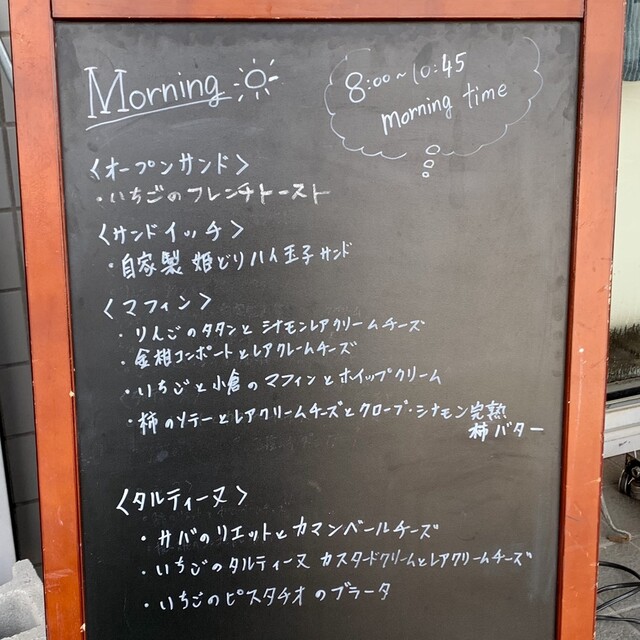 Morning
8:00~10:45
morning time
<オープンサンド>
・いちごのフレンチトースト
<サンドイッチ>
・自家製 姫どりハム玉子サンド
<マフィン>
・りんごのタタンとシナモンレアクリームチーズ
・金柑コンポートとレアクレームチーズ
・いちごと小倉のマフィンとホイップクリーム
・柿のソテーとレアクリームチーズとクローブ・シナモン完熟
柿バター
<タルティーヌ>
・サバのリエットとカマンベールチーズ
・いちごのタルティーヌ カスタードクリームとレアクリームチーズ
・いちごのピスタチオのブラータ